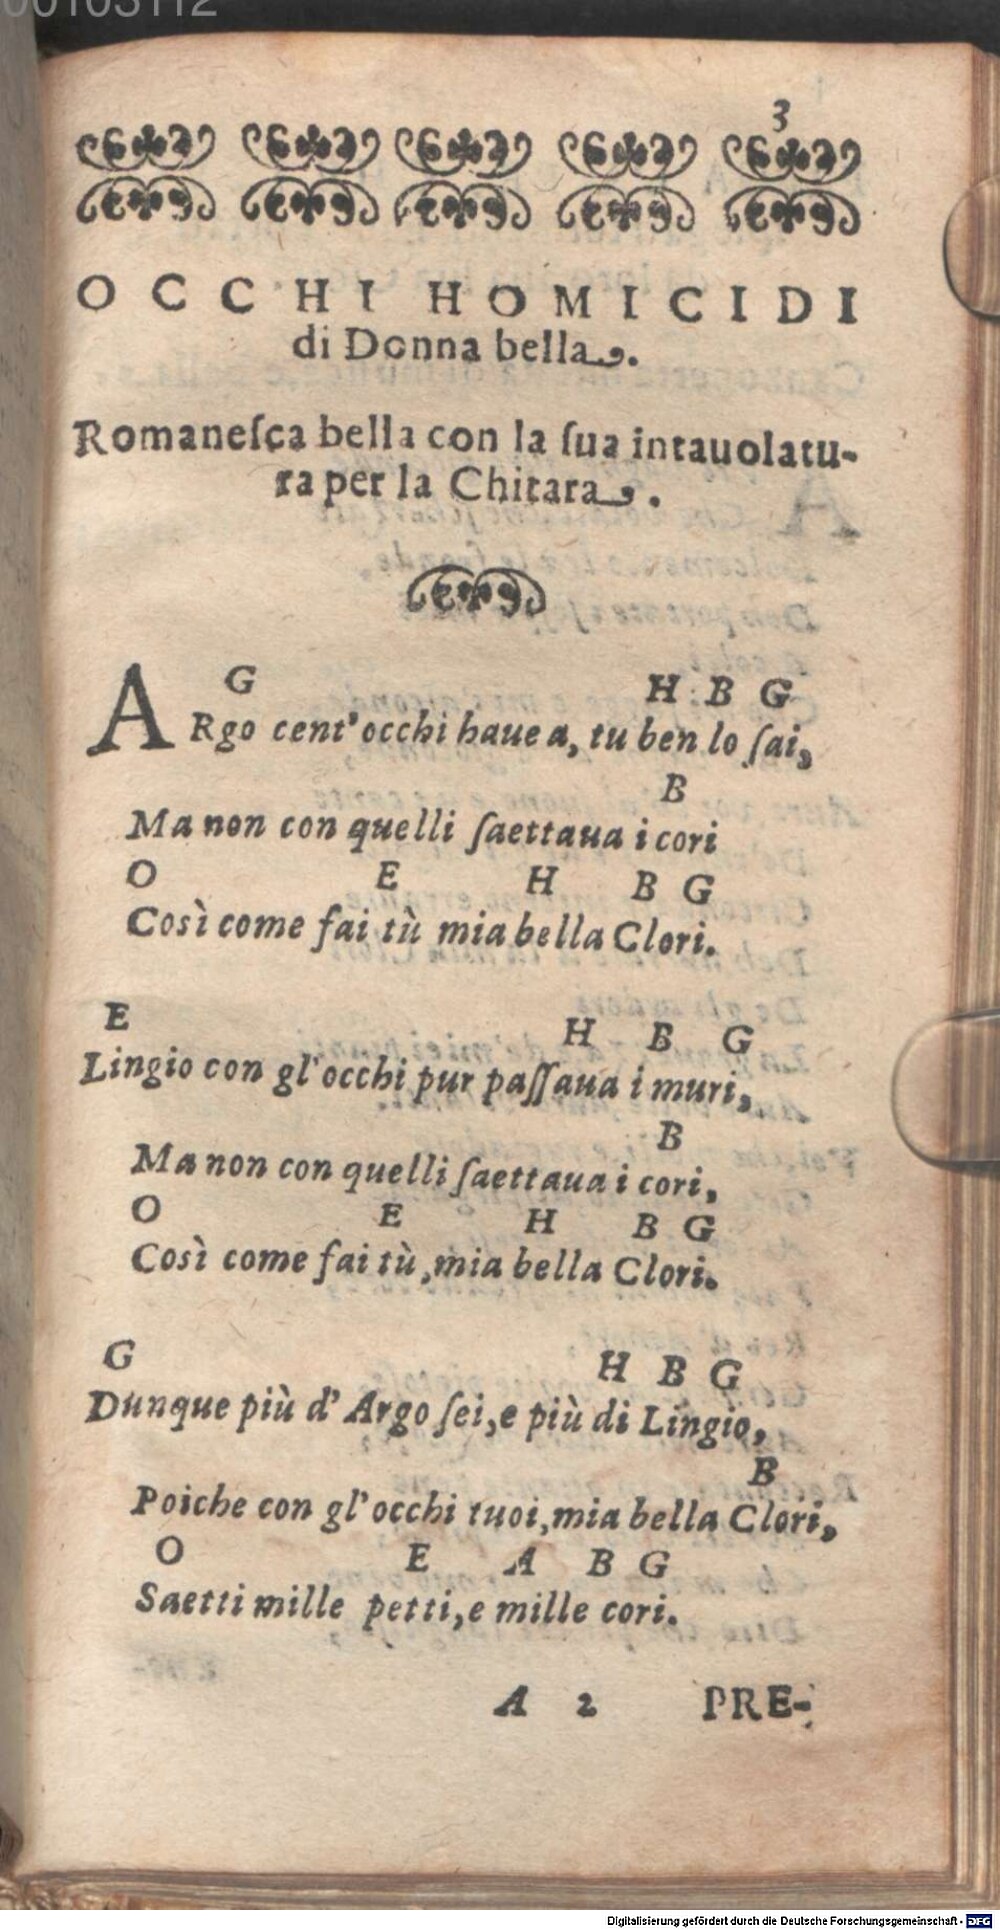 00103112
3
OCCHI HOMICIDI
di Donna bella.
Romaneſca bella con la ſua intauolatu-
ra per la Chitara.
G H B G
ARgo cent'occhi hauea, tu ben lo ſai,
B
Ma non con quelli ſaettaua i cori
O E H B G
Così come fai tù mia bella Clori.
E H B G
Lingio con gl'occhi pur paſſaua i muri,
B
Ma non con quelli ſaettaua i cori,
O E H B G
Così come fai tù, mia bella Clori.
G H B G
Dunque più d'Argo ſei, e più di Lingio,
B
Poiche con gl'occhi tuoi, mia bella Clori,
O E A B G
Saetti mille petti, e mille cori.
A 2 PRE-
Digitalisierung gefördert durch die Deutsche Forschungsgemeinschaft - DFG